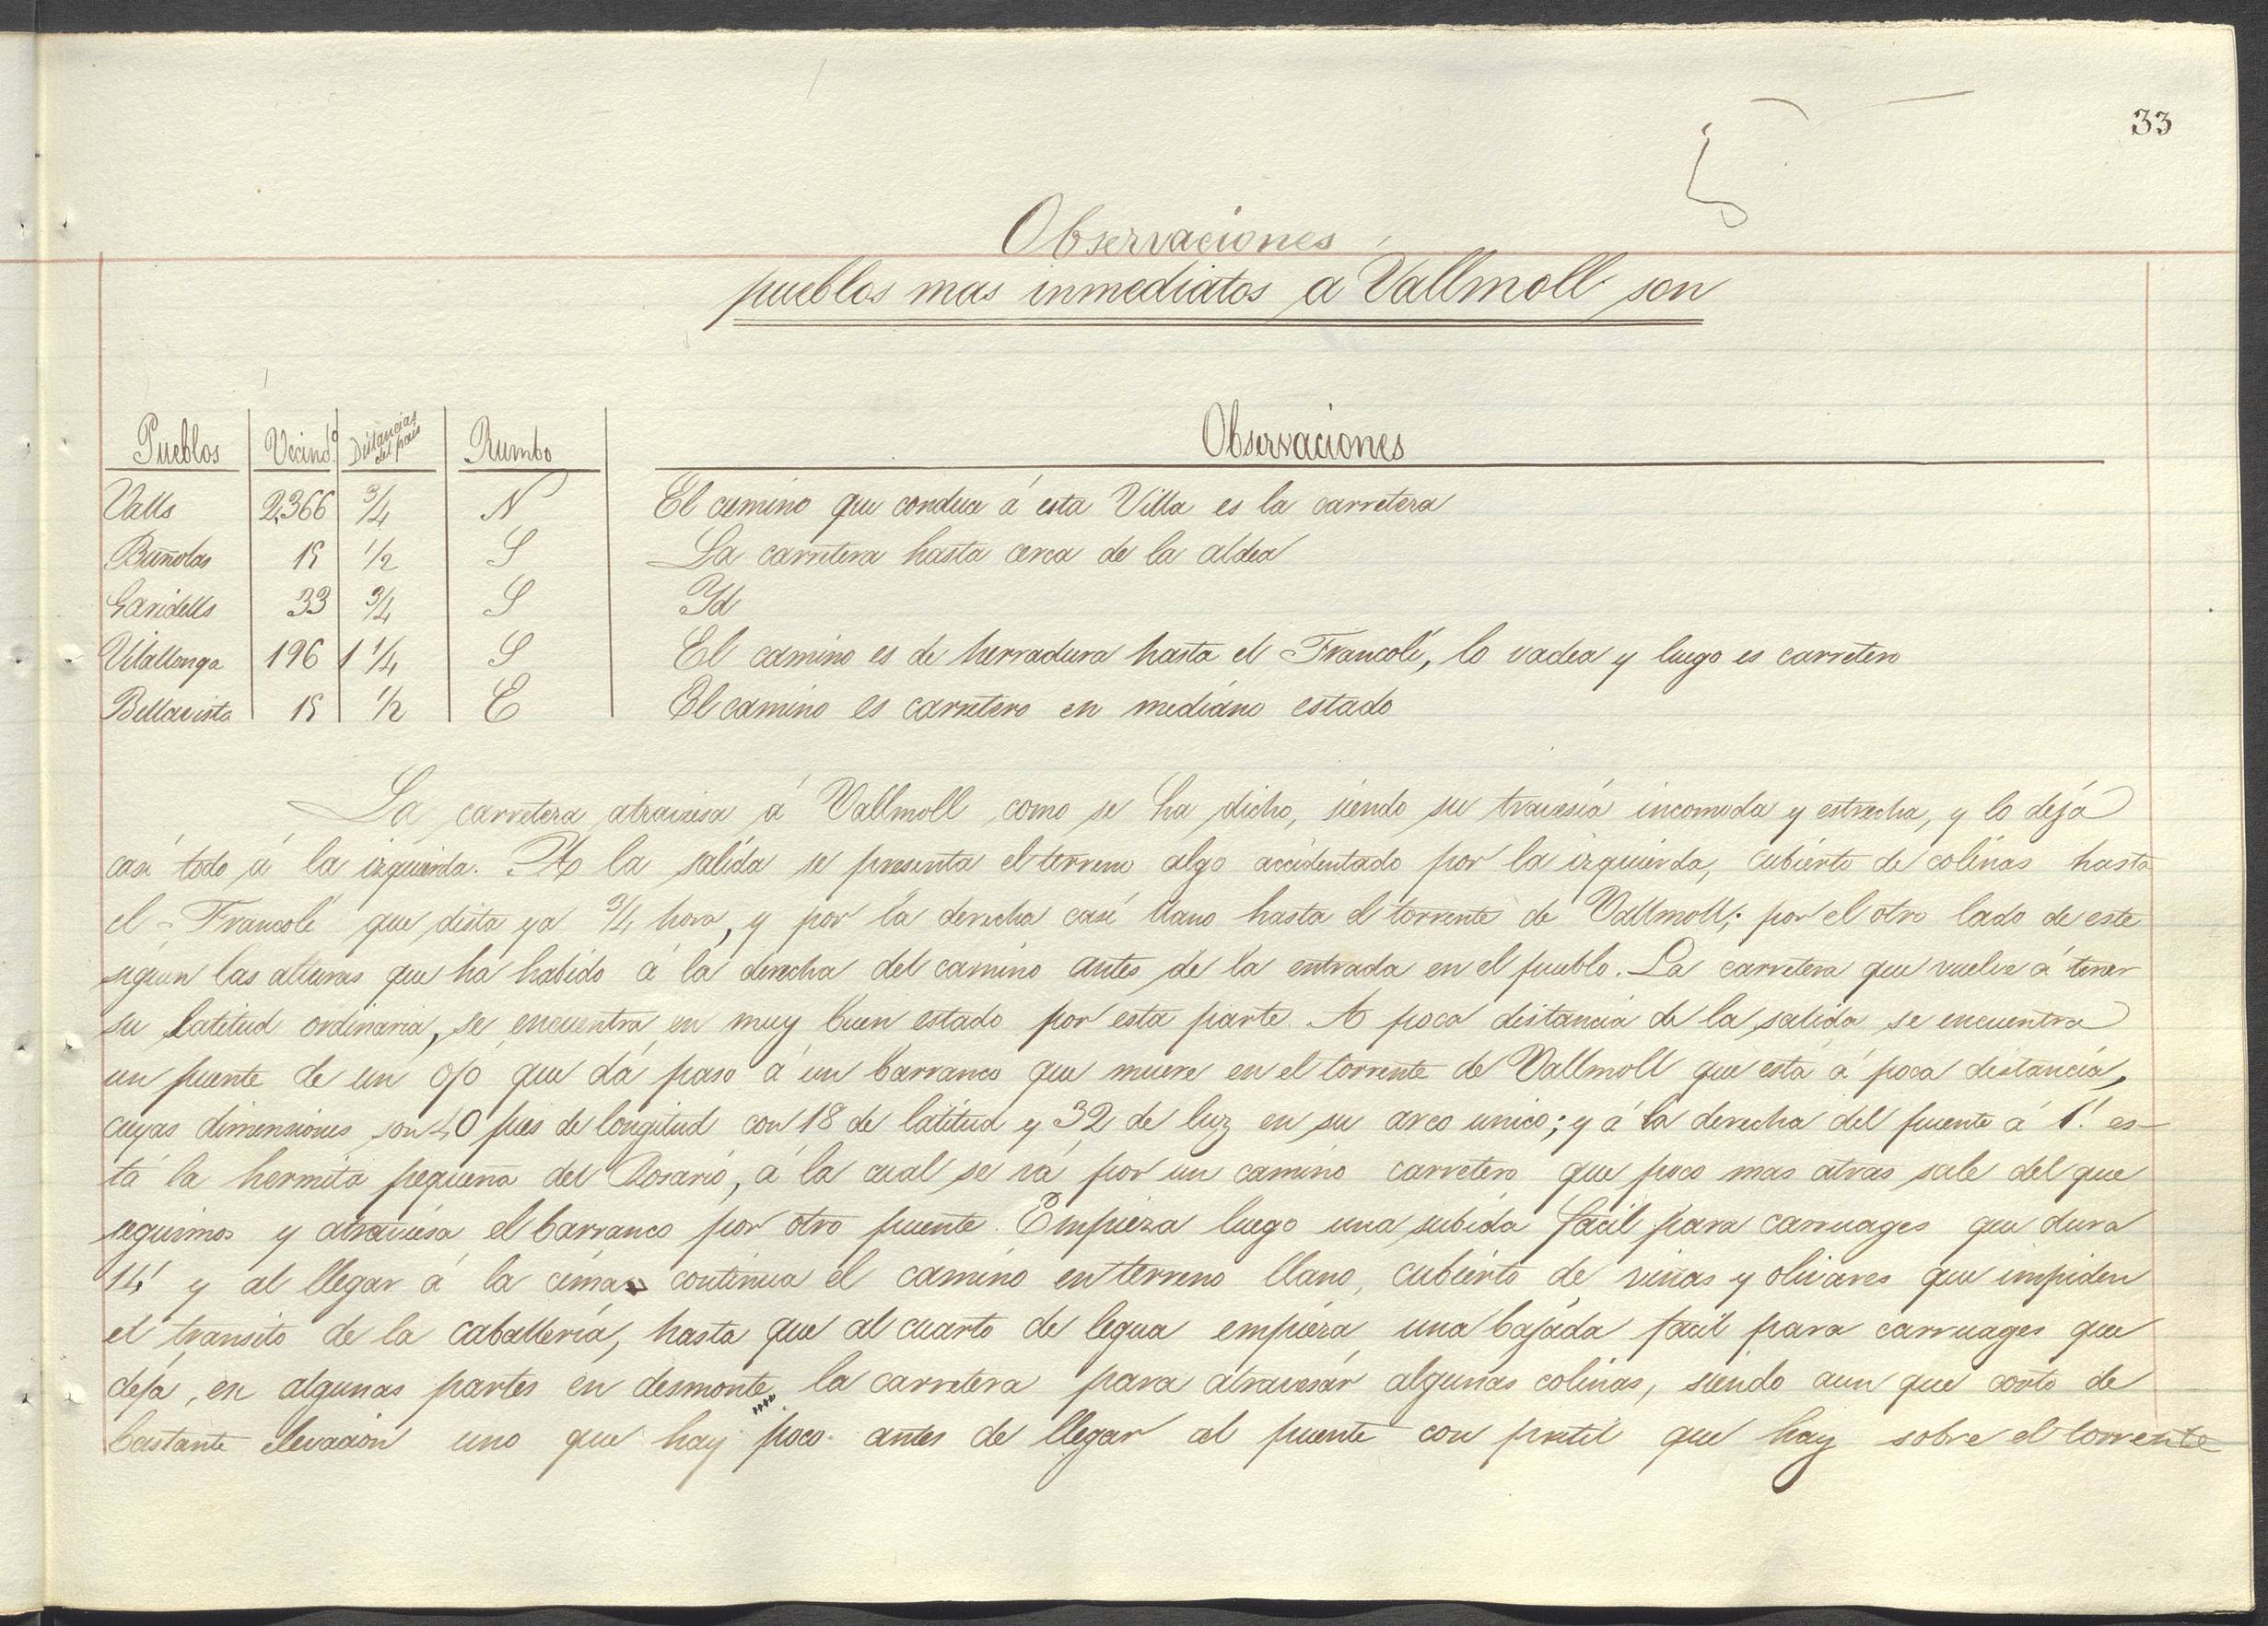 33
Observaciones
pueblos mas inmediatos a Vallmoll son
Pueblos Vecind.º Distancias del pais Rumbo Observaciones
Valls 2,366 3/4 N El camino que conduce á esta Villa es la carretera
Buñolas 15 1/2 S La carretera hasta cerca de la aldea
Garidells 33 3/4 S Id
Vilallonga 196 1 1/4 S El camino es de herradura hasta el Francolí, lo vadea y luego es carretero
Bellavista 15 1/2 E El camino es carretero en mediano estado
La carretera atraviesa á Vallmoll como se ha dicho, siendo su travesía incomoda y estrecha, y lo deja
casi todo á la izquierda. A la salida se presenta el terreno algo accidentado por la izquierda, cubierto de colinas hasta
el Francolí que dista ya 3/4 hora, y por la derecha casi llano hasta el torrente de Vallmoll; por el otro lado de este
siguen las alturas que ha habido á la derecha del camino antes de la entrada en el pueblo. La carretera que vuelve á tener
su latitud ordinaria, se encuentra en muy buen estado por esta parte. A poca distancia de la salida se encuentra
un puente de un ojo que dá paso á un barranco que muere en el torrente de Vallmoll que está á poca distancia,
cuyas dimensiones son 40 pies de longitud con 18 de latitud y 32 de luz en su arco unico; y á la derecha del puente á 1' es-
tá la hermita pequeña del Rosario, á la cual se vá por un camino carretero que poco mas atras sale del que
seguimos y atraviesa el barranco por otro puente. Empieza luego una subida facil para carruages que dura
14' y al llegar á la cima continua el camino en terreno llano, cubierto de viñas y olivares que impiden
el transito de la caballería, hasta que al cuarto de legua empieza una bajada facil para carruages que
deja, en algunas partes en desmonte, la carretera para atravesar algunas colinas, siendo aun que corto de
bastante elevacion uno que hay poco antes de llegar al puente con pretil que hay sobre el torrente